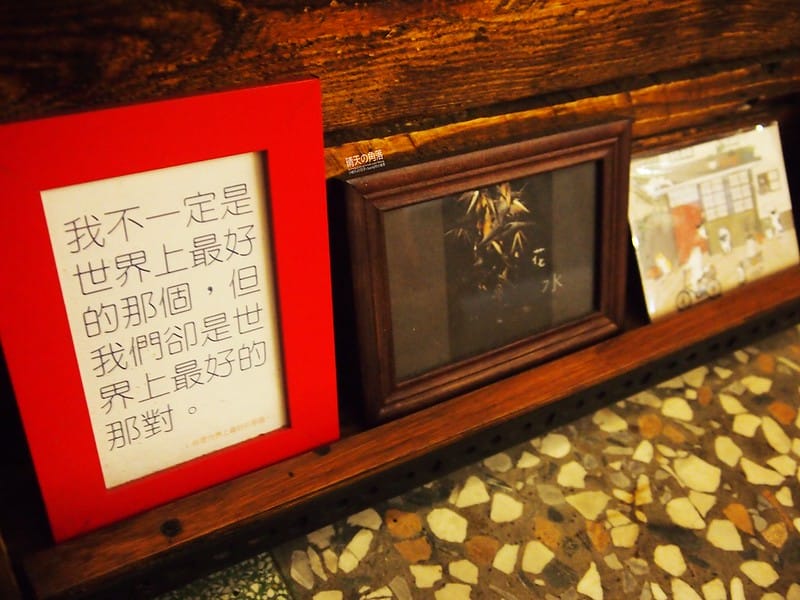 我不一定是
世界上最好
的那個，但
我們卻是世
界上最好的
那對。
晴天の角落
花
水